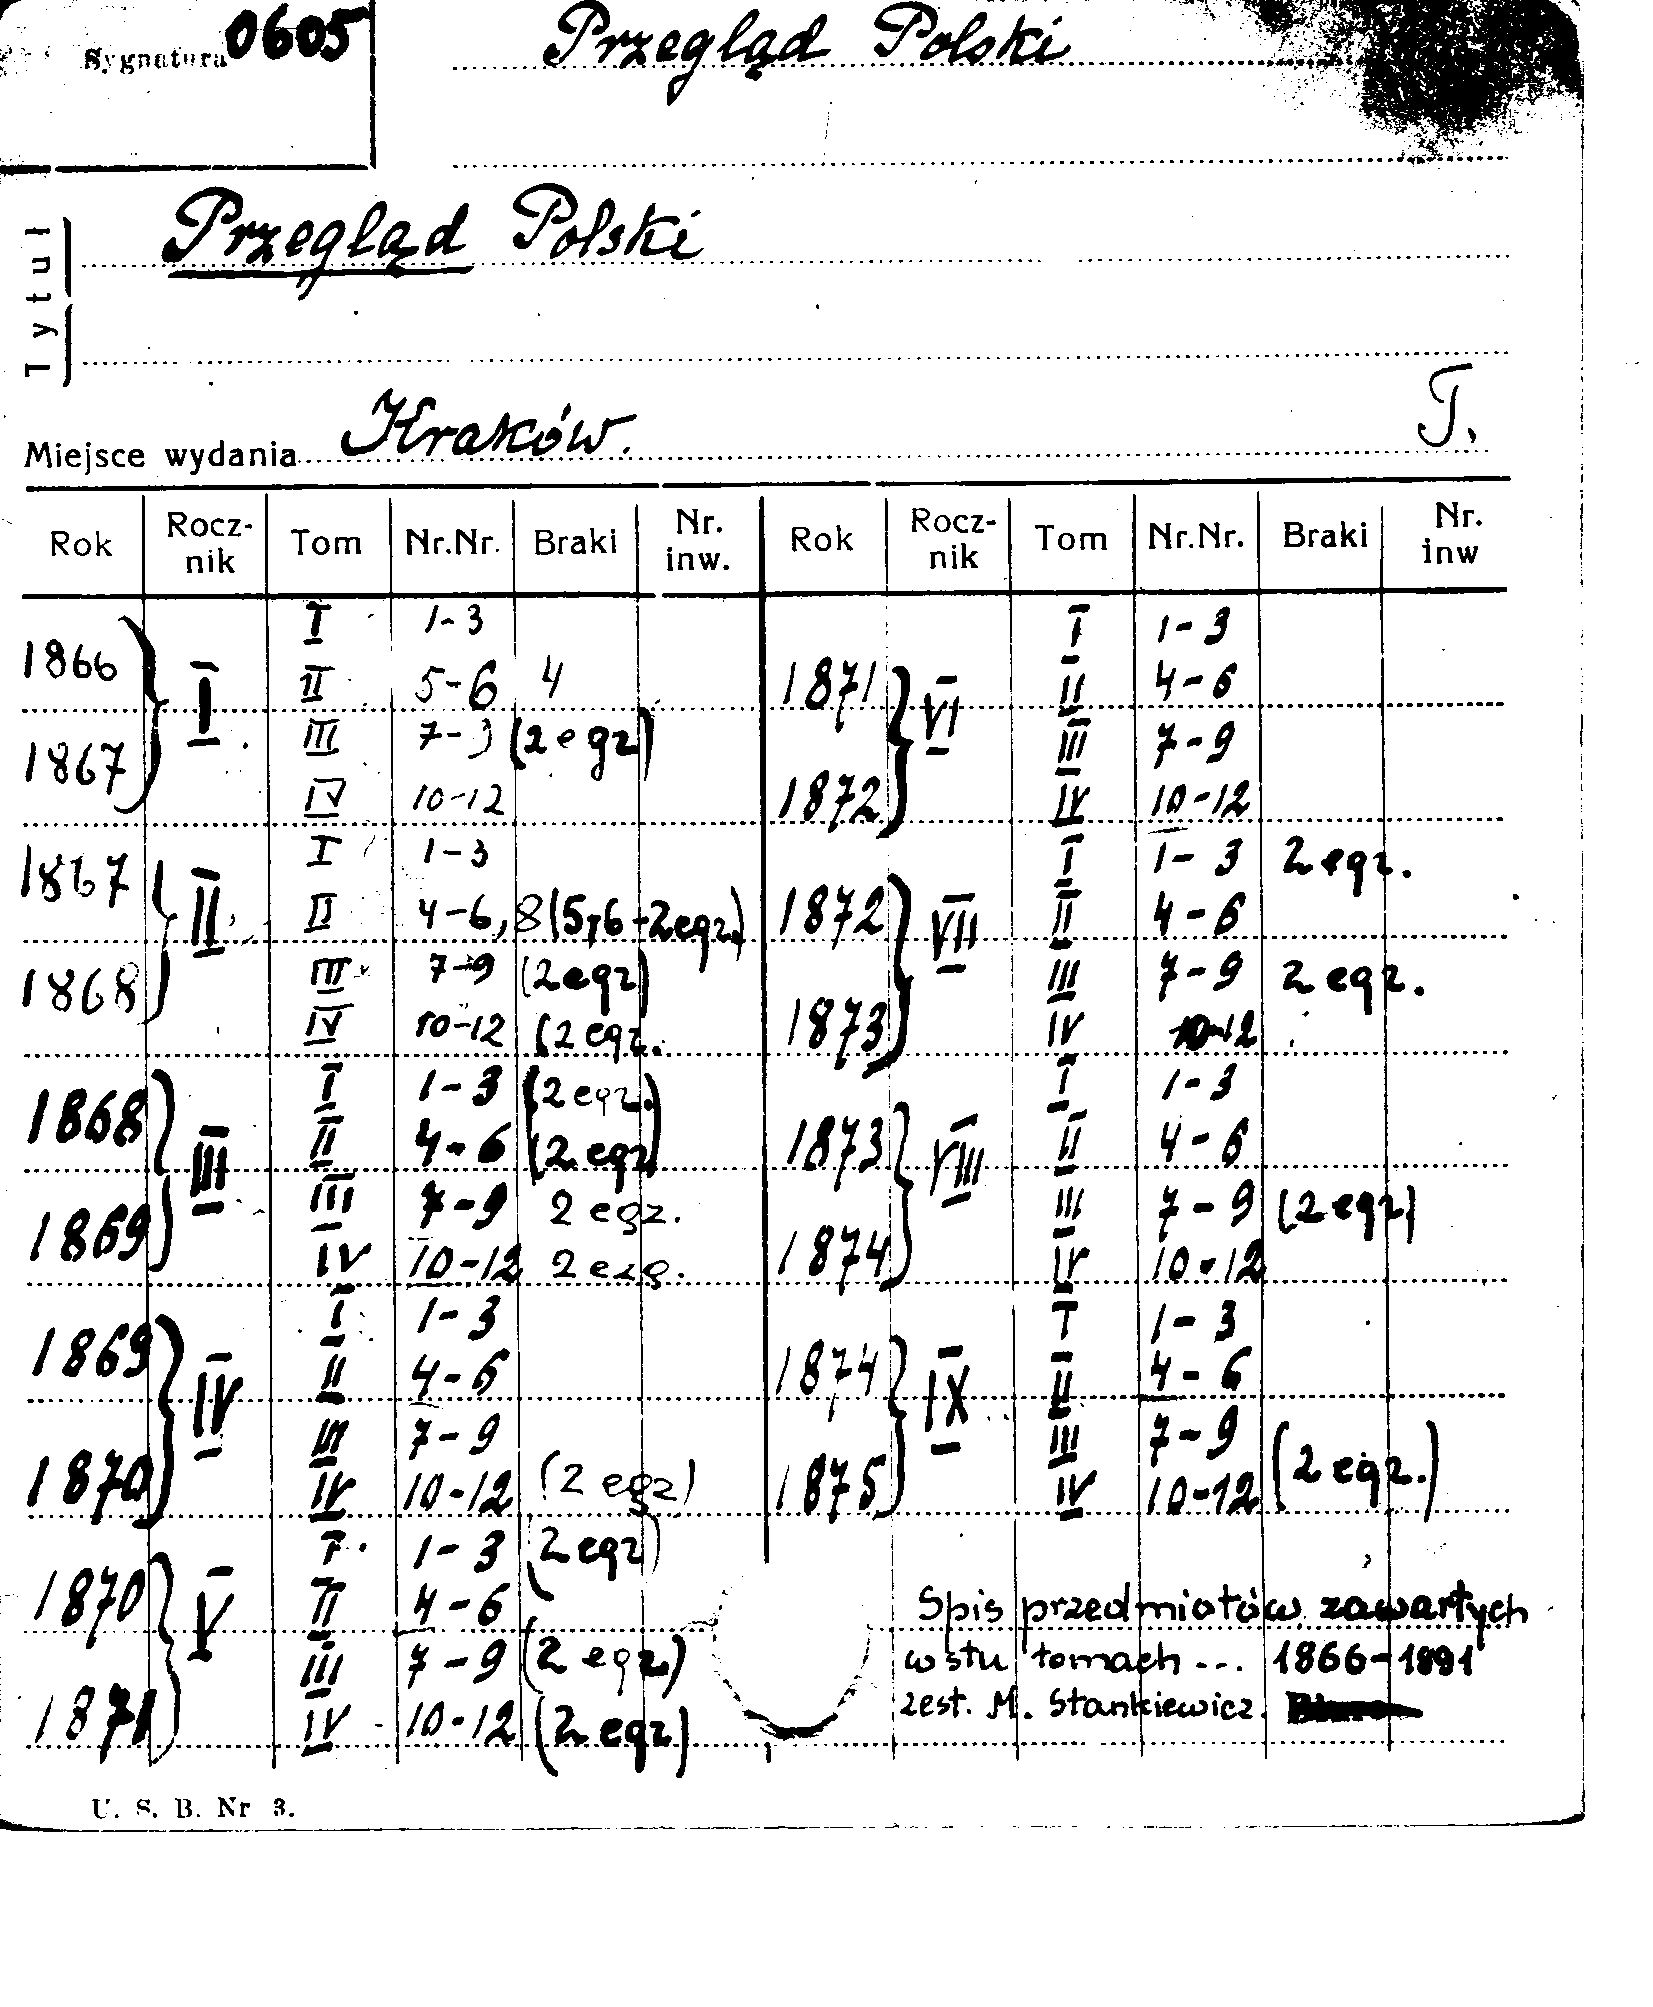 Sygnatura 0605
Przegląd Polski
Tytuł
Przegląd Polski
Miejsce wydania Kraków. T.
Rok Rocz-nik Tom Nr.Nr. Braki Nr. inw. Rok Rocz-nik Tom Nr.Nr. Braki Nr. inw
I 1-3 I 1-3
1866 I II 5-6 4 1871 VI II 4-6
1867 III 7-3 (2 egz) III 7-9
IV 10-12 1872 IV 10-12
1867 II I 1-3 I 1-3 2 egz.
II 4-6, 8 (5,6-2egz.) 1872 VII II 4-6
1868 III 7-9 (2egz) III 7-9 2 egz.
IV 10-12 (2 egz. 1873 IV 10-12
1868 III I 1-3 (2 egz.) I 1-3
II 4-6 (2 egz) 1873 VIII II 4-6
1869 III 7-9 2 egz. III 7-9 (2 egz)
IV 10-12 2 ezg. 1874 IV 10-12
1869 IV I 1-3 I 1-3
II 4-6 1874 IX II 4-6
1870 III 7-9 III 7-9
IV 10-12 (2 egz) 1875 IV 10-12 (2 egz.)
1870 V I 1-3 (2 egz)
II 4-6 Spis przedmiotów zawartych
III 7-9 (2 egz.) w stu tomach ... 1866-1891
1871 IV 10-12 (2 egz) zest. M. Stankiewicz.
U. S. B. Nr 3.